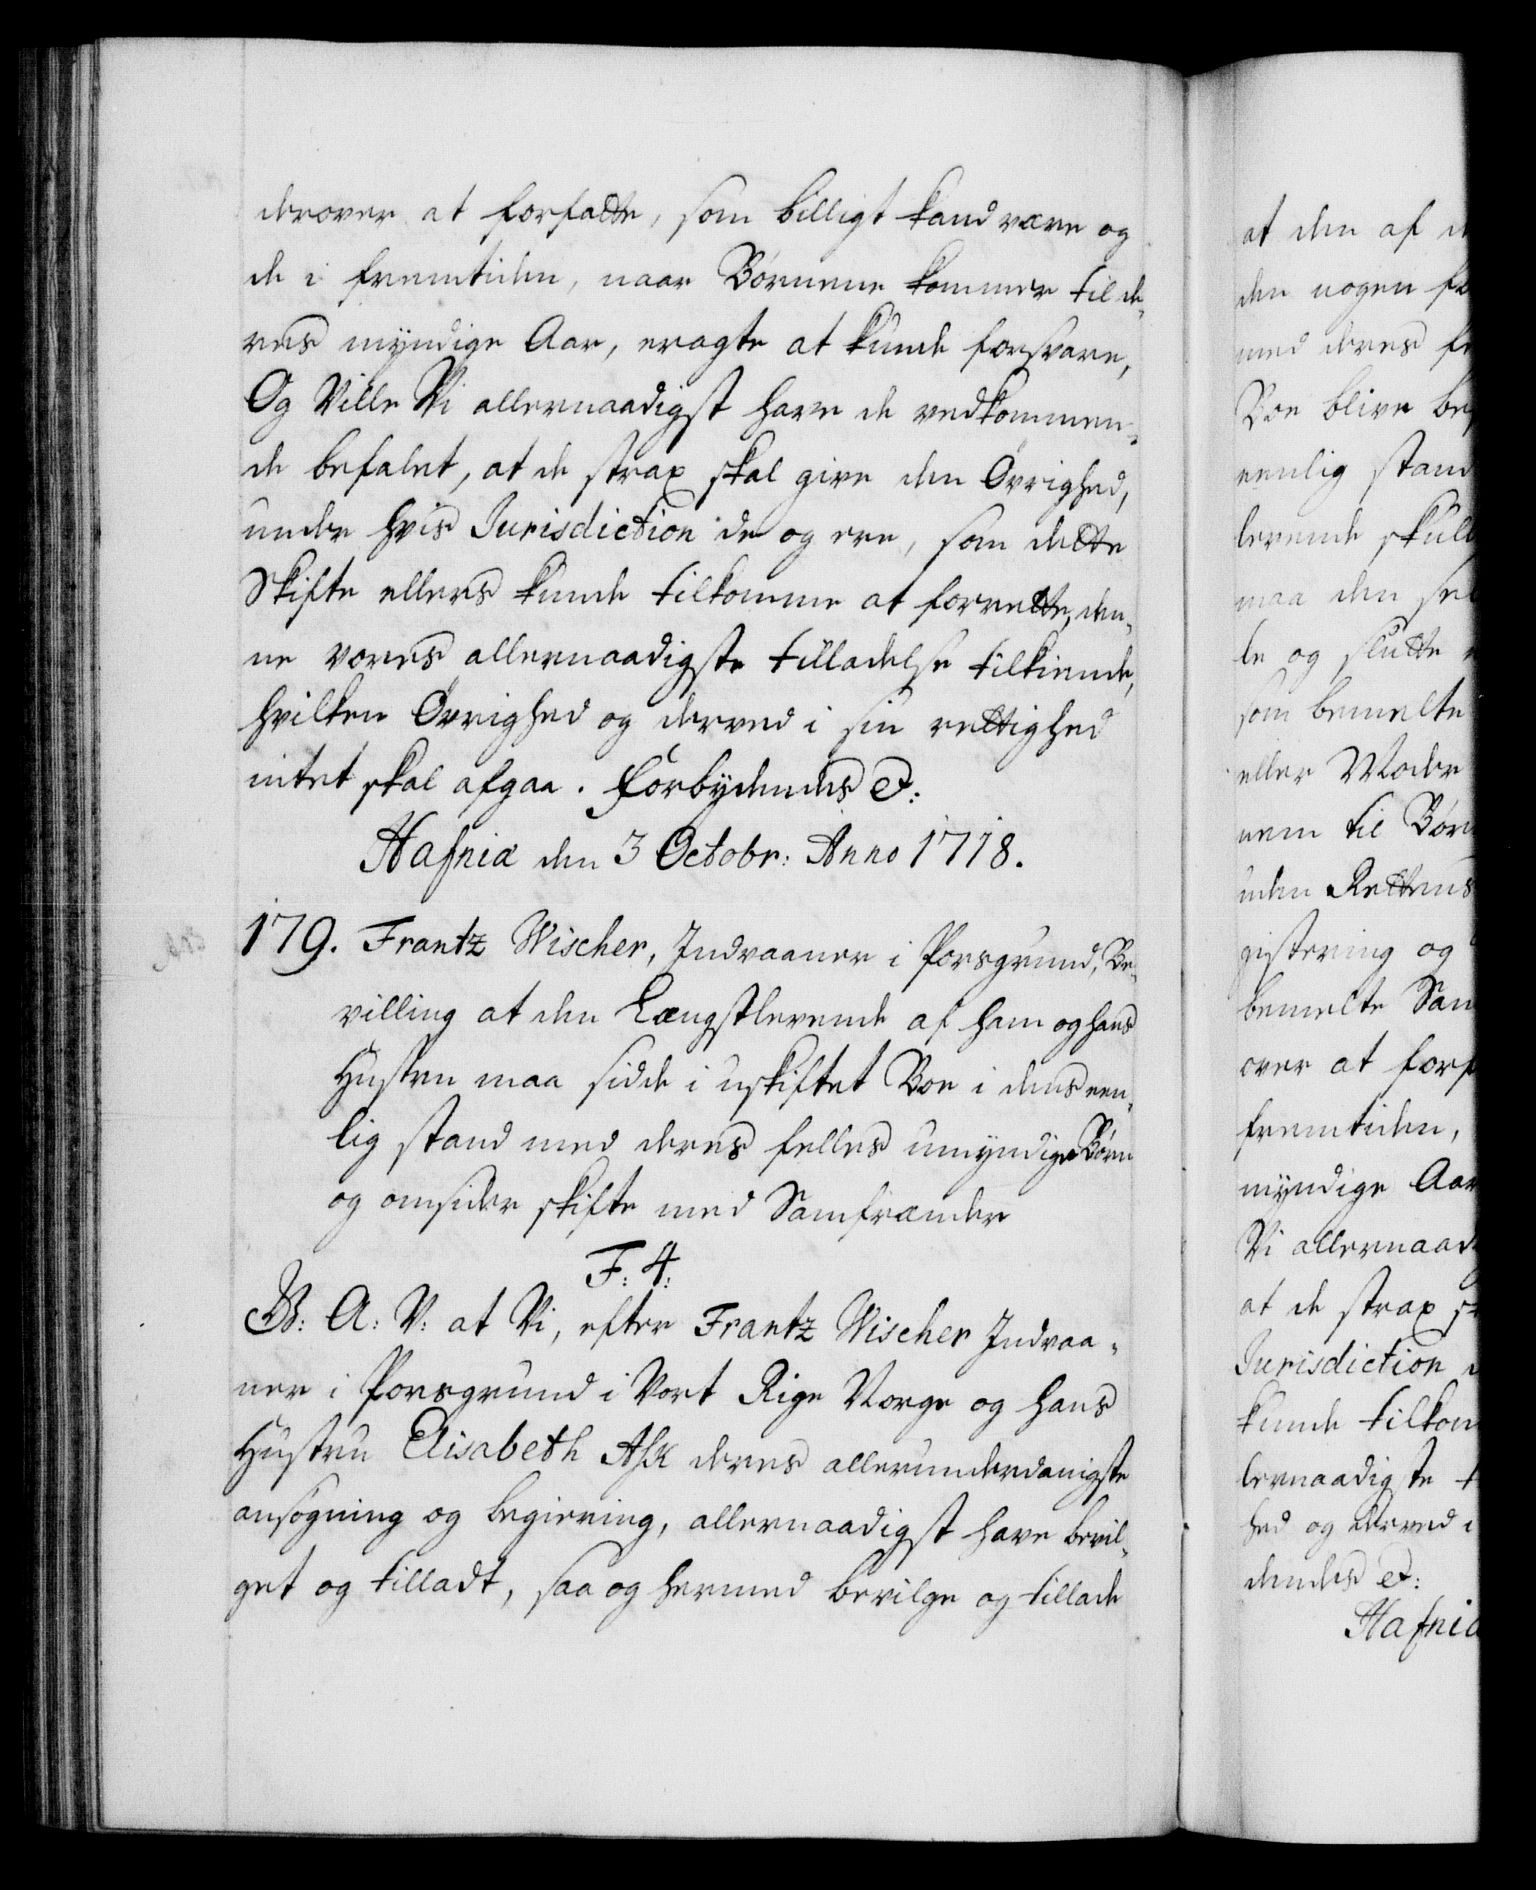 derover at forfatte, som billigt kand være og
de i fremtiden, naar Børnene kommer til de¬
res myndige Aar, eragte at kunde forsvare,
Og Ville Vi allernaadigst have de vedkommen¬
de befalet, at de strax skal give den Øvrighed,
under hvis Jurisdiction de og ere, som dette
Skifte ellers kunde tilkomme at forrette, den¬
ne vores allernaadigste tilladelse tilkiende,
hvilken Øvrighed og derved i sin rettighed
intet skal afgaa. Forbydendes &:
Hafniæ den 3 Octobr: Anno 1718.
179. Frantz Wischer, Indvaaner i Porsgrund, Be¬
villing at den Længstlevende af ham og hans
Hustru maa sidde i uskiftet Boe i dens een¬
lig stand med deres felles umyndige Børn
og omsider skifte med Samfrænder
F: 4:
G: A: V: at Vi, efter Frantz Wischer Indvaa¬
ner i Porsgrund i Vort Rige Norge og hans
Hustru Elisabeth Ask deres allerunderdanigste
ansøgning og begiering, allernaadigst have bevil¬
get og tilladt, saa og hermed bevilge og tillade
at den af
den nogen
med deres
Boe blive
eenlig stand
levende
maa den
le og slutte
som bemelte
eller Moder
nem til
uden Rettens
gistering og
bemelte
over at
fremtiden,
myndige Aar
Vi
at de strax
Jurisdiction
kunde
lernaadigste
hed og derved i
dendes &:
Hafniæ